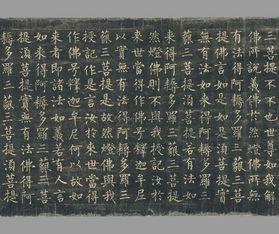 三菩提不不也世尊如我解
佛所說義佛於然燈佛所無
有法得阿耨多羅三藐三菩
提佛言如是如是須菩提實
無有法如來得阿耨多羅三
藐三菩提須菩提若有法如
來得阿耨多羅三藐三菩提
然燈佛則不與我授記汝於
來世當得作佛號釋迦牟尼
以實無有法得阿耨多羅三
藐三菩提是故然燈佛與我
授記作是言汝於來世當得
作佛號釋迦牟尼何以故如
來者即諸法如義若有人言
如來得阿耨多羅三藐三菩
提須菩提實無有法佛得阿
耨多羅三藐三菩提須菩提